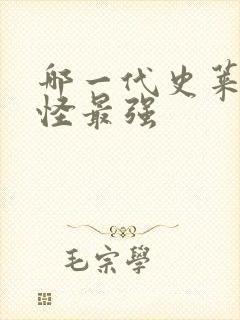 那一代史莱
怪最强
毛宗學